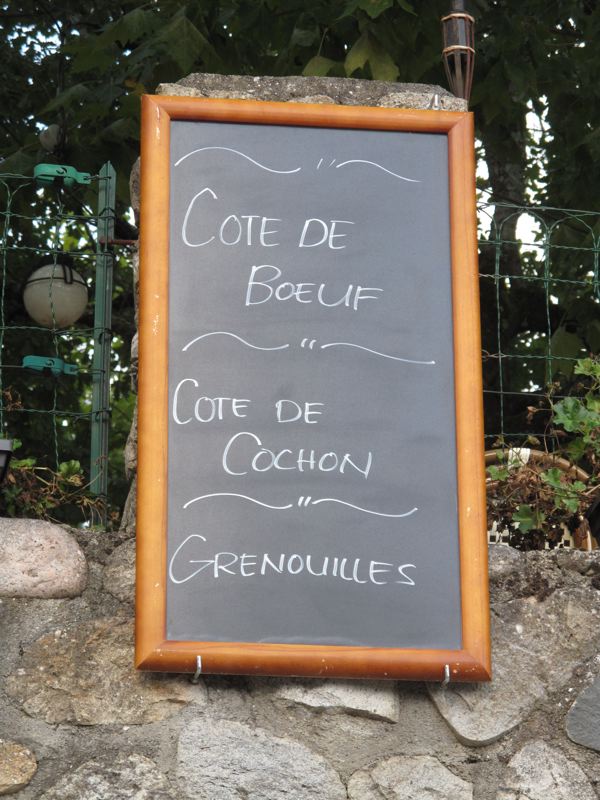 COTE DE
BOEUF
COTE DE
COCHON
GRENOUILLES